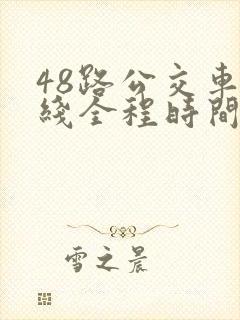 48路公交車
綫全程時間
雪之晨